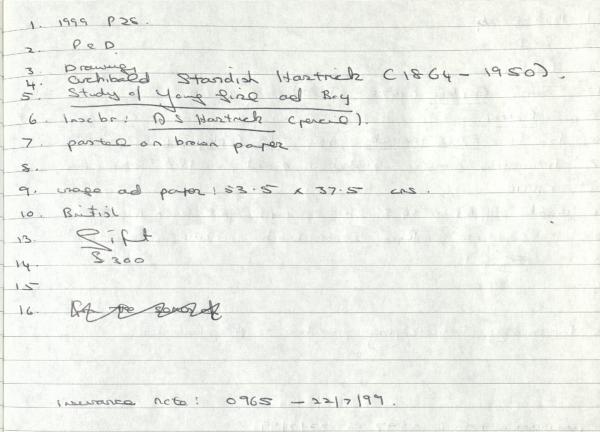 1. 1999 P26.
2. P e D.
3 Drawings
4. Archibald Standish Hartrick (1864 - 1950).
5. Study of Young Girl ad Boy
6. Inscbr: A S Hartrick (pencil).
7. pastel on brown paper
8.
9. image ad paper: 53.5 x 37.5 cms.
10. British
13. Gift
14. $300
15
16.
insurance note: 0965 - 22/7/99.